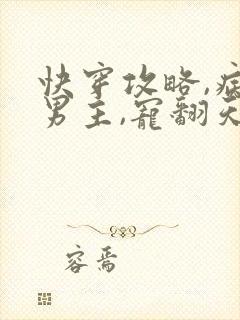 快穿攻略,病
男主,宠翻天
容焉